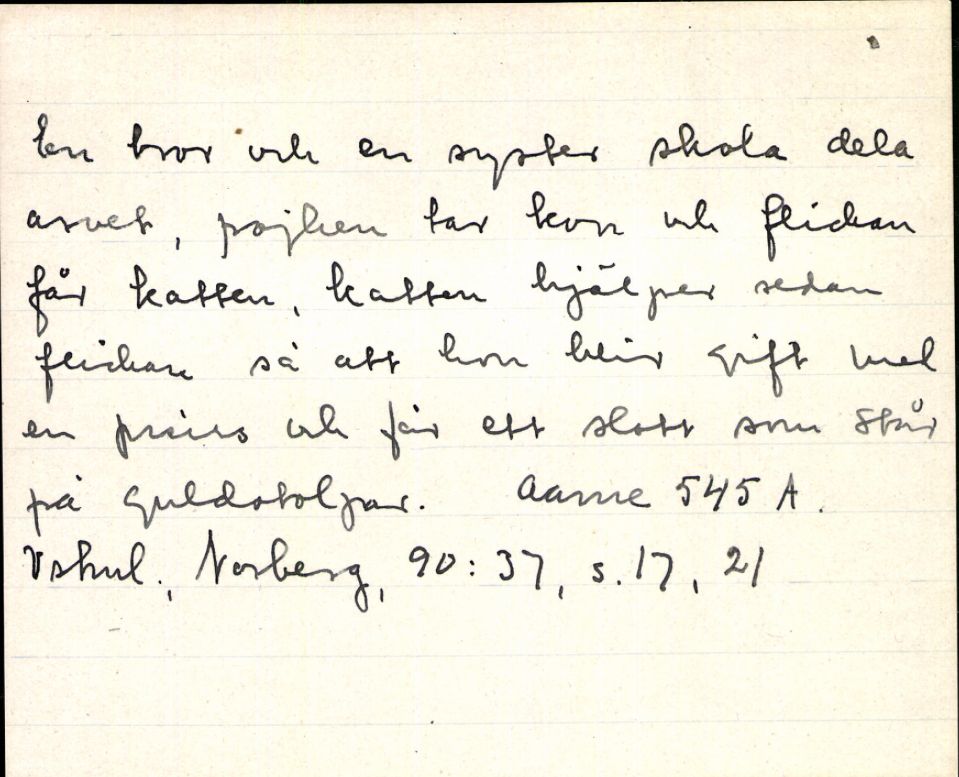 En bror och en syster skola dela
arvet, pojken tar kon och flickan
får katten, katten hjälper sedan
flickan så att hon blir gift med
en prins och får ett slott som står
på guldstolpar. Aarne 545 A.
Vskul., Norberg, 90:37, s. 17, 21